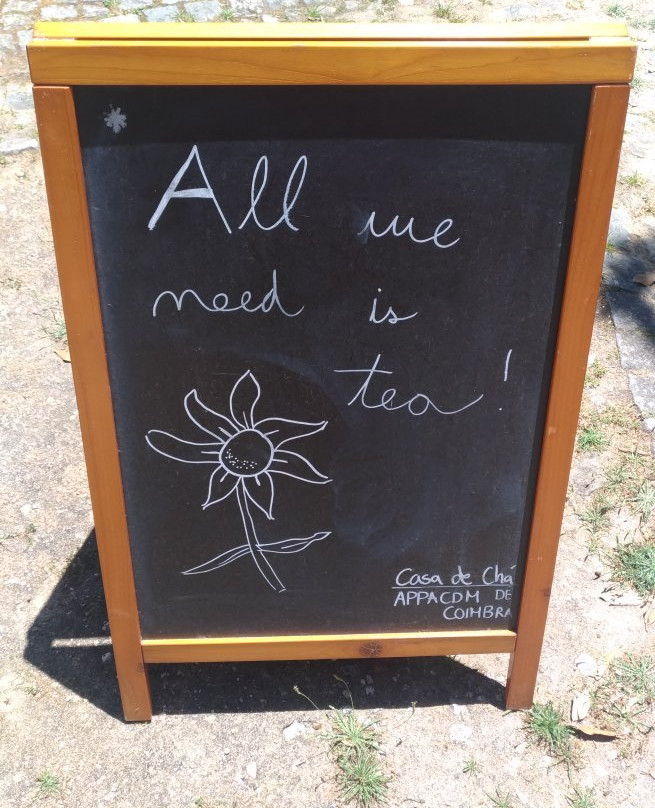 All we
need is
tea!
Casa de Chá
APPACDM DE
COIMBRA